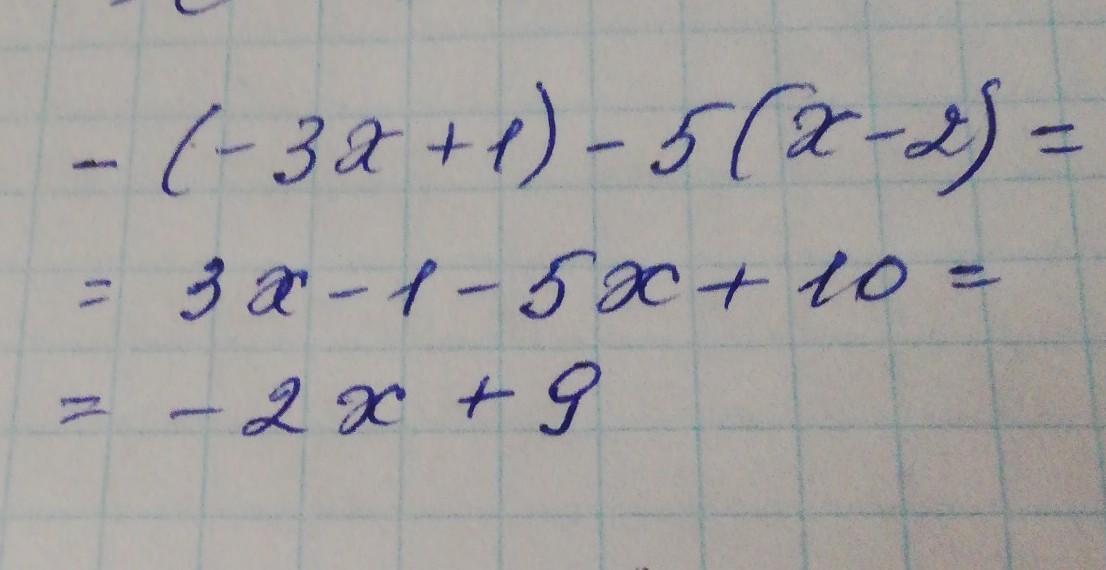 - (-3x + 1) - 5(x - 2) =
= 3x - 1 - 5x + 10 =
= - 2x + 9